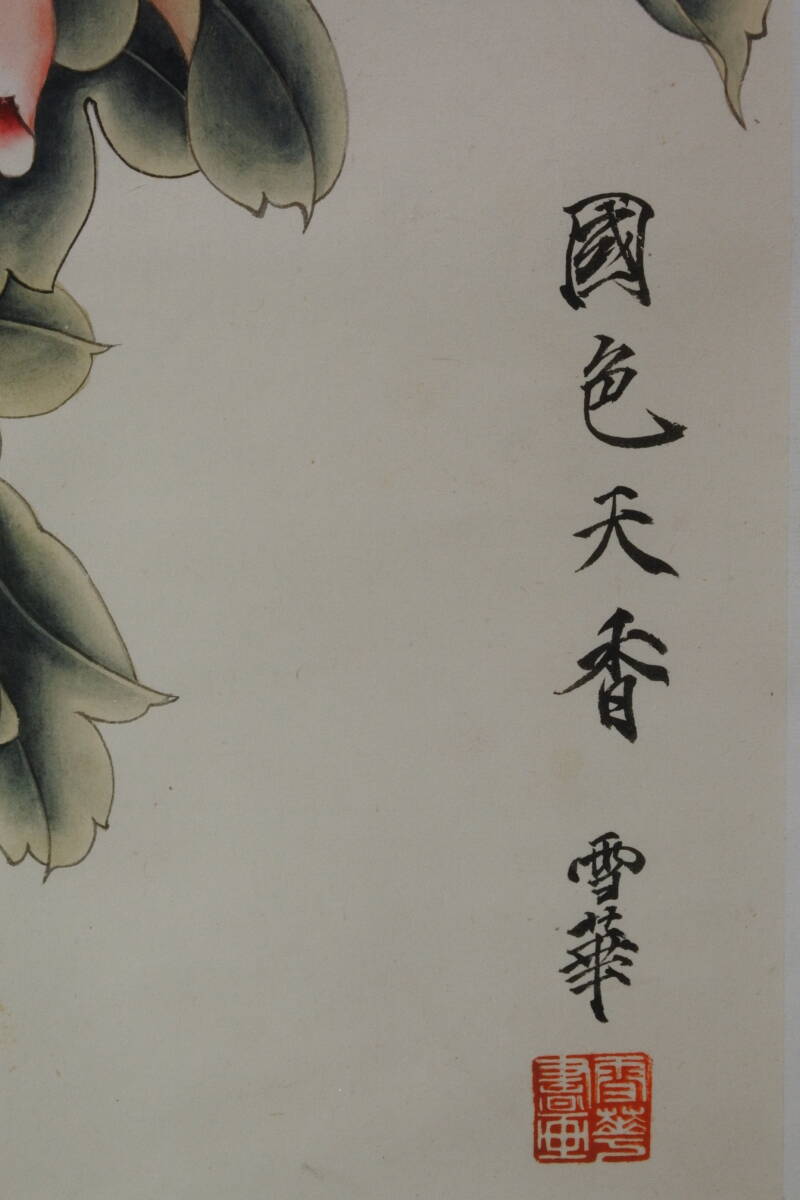 國色天香
雪華
雪華
書画